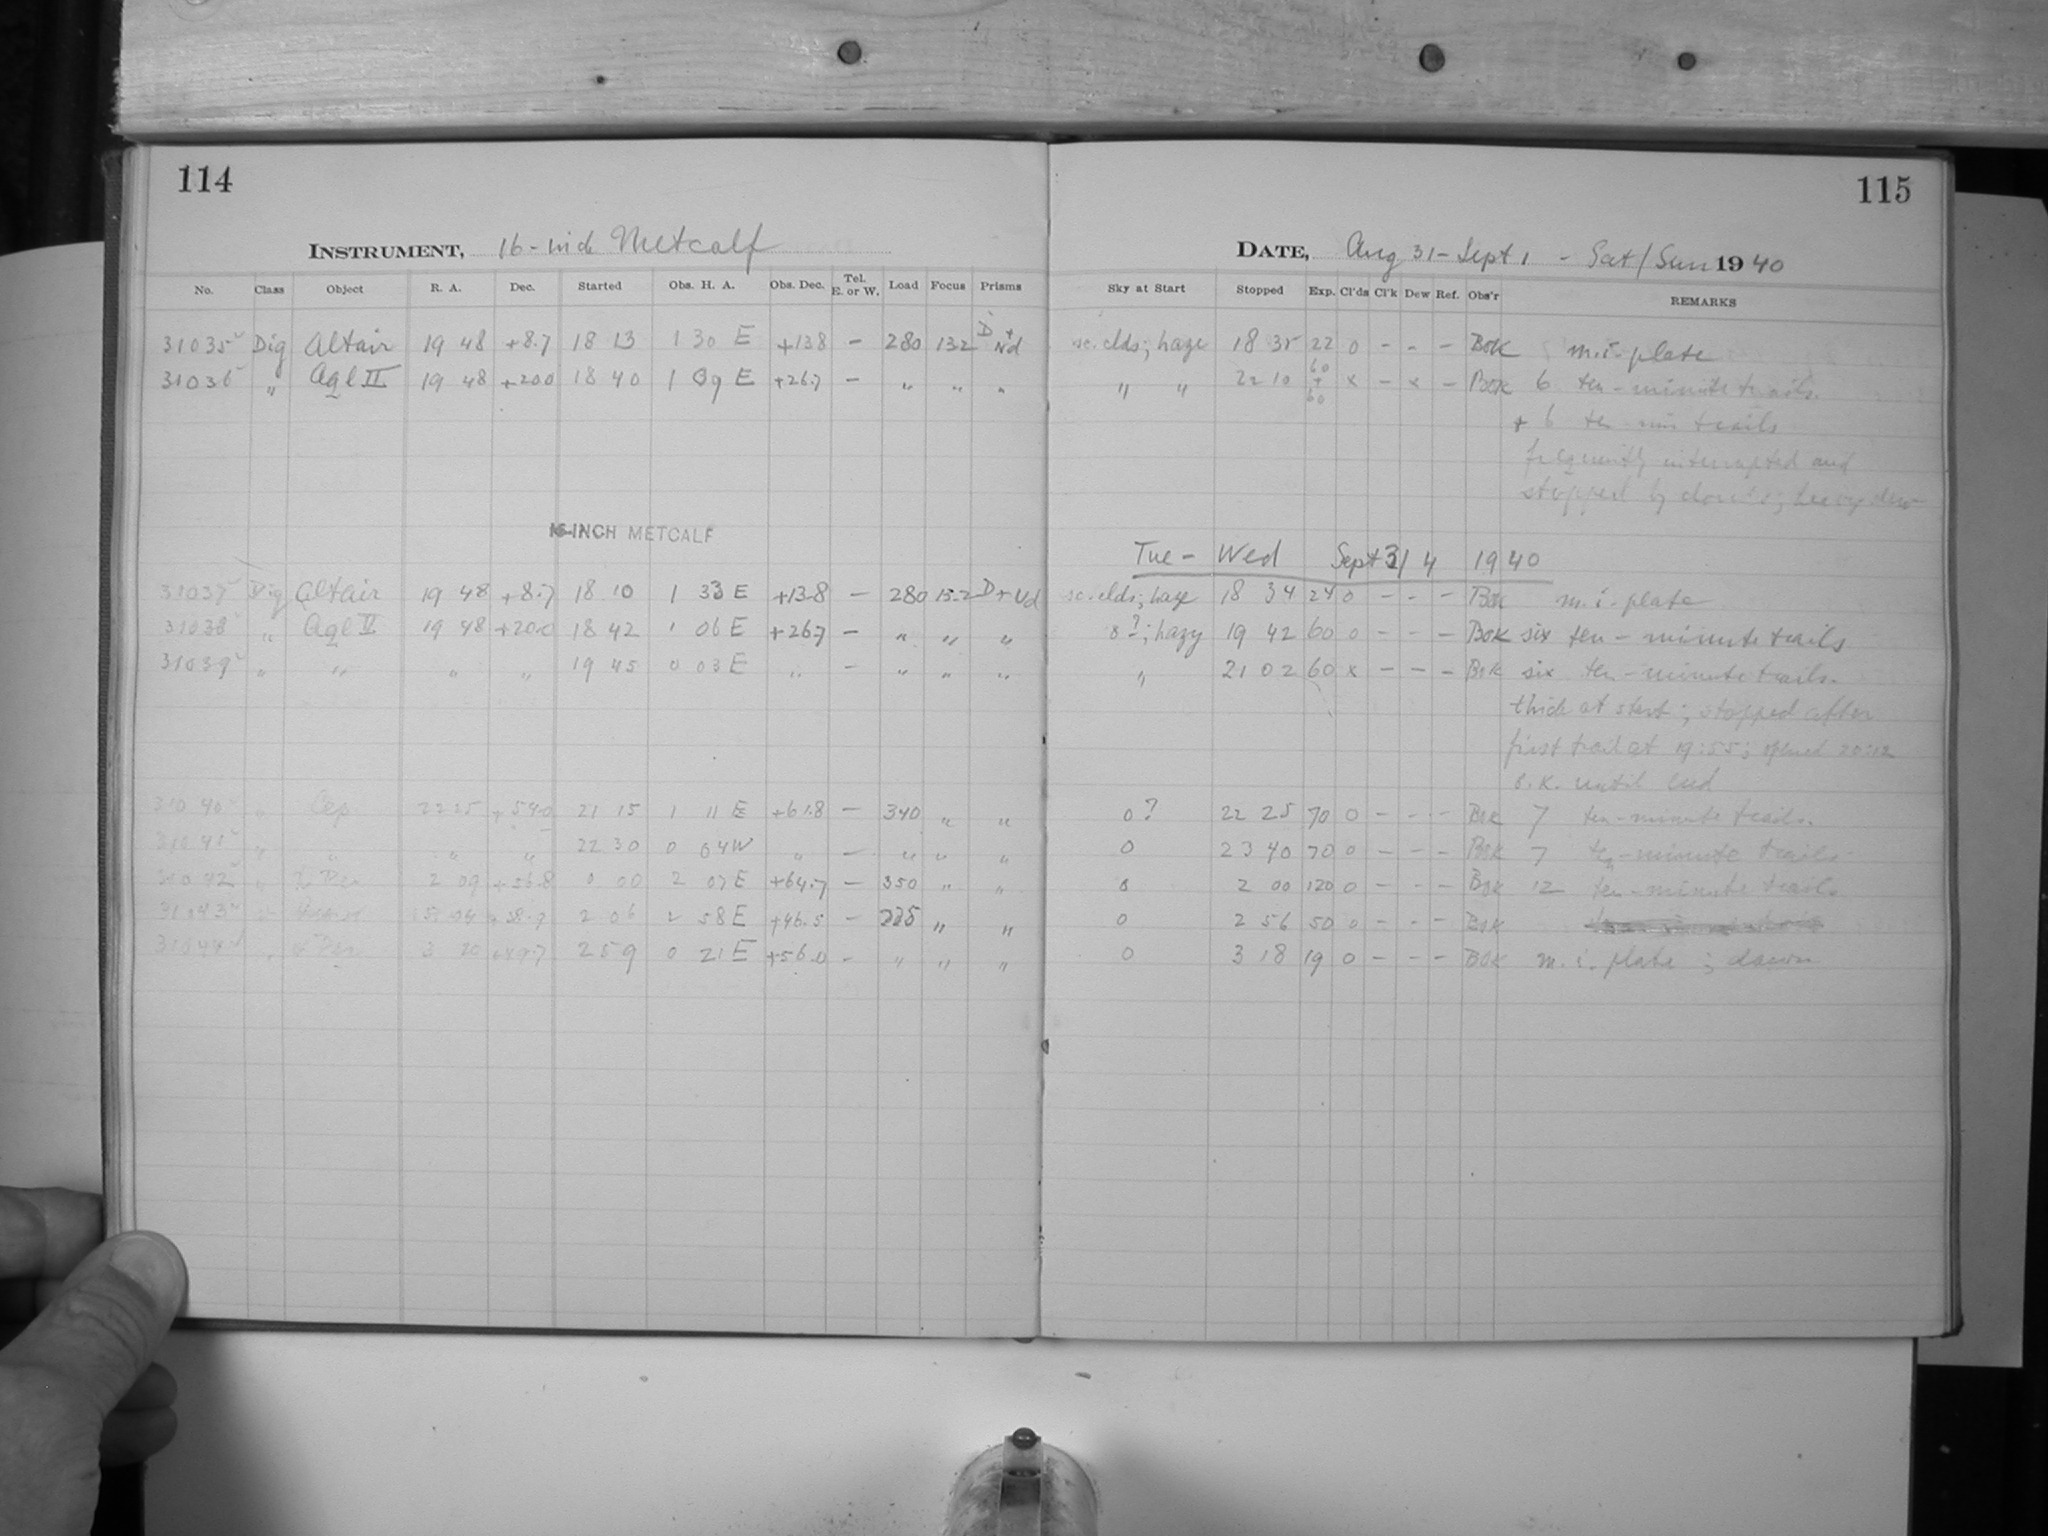 114
115
INSTRUMENT, 16-inch Metcalf
DATE, Aug 31 - Sept 1 - Sat/Sun 1940
No. Class Object R. A. Dec. Started Obs. H. A. Obs. Dec. Tel. E. or W. Load Focus Prisms Sky at Start Stopped Exp. Cl'ds Cl'k Dew Ref. Obs'r REMARKS
31035 Dig Altair 19 48 +8.7 18 13 1 30 E +13.8 - 280 13.2 D + Nd sc. clds; haze 18 35 22 0 - - - BOK m.i. plate
31036 " Aql II 19 48 +20.0 18 40 1 09 E +26.7 - " " " " " 22 10 60 + 60 x - x - BOK 6 ten-minute trails
+ 6 ten min trails
frequently interrupted and
stopped by clouds; heavy dew
16-INCH METCALF
Tue - Wed Sept 3/4 1940
31037 Dig Altair 19 48 +8.7 18 10 1 33 E +13.8 - 280 13.2 D + Nd sc. clds; haze 18 34 24 0 - - - BOK m.i. plate
31038 " Aql 19 48 +20.0 18 42 1 06 E +26.7 - " " " 0?; hazy 19 42 60 0 - - - BOK six ten-minute trails
31039 " " " " 19 45 0 03 E " - " " " " 21 02 60 x - - - BOK six ten-minute trails.
thick at start; stopped after
first trail at 19:55; opened 20:12
o.k. until end
31040 " Cep 22 25 +54.0 21 15 1 11 E +61.8 - 340 " " 0? 22 25 70 0 - - - BOK 7 ten-minute trails.
31041 " " " " 22 30 0 04 W " - " " " 0 23 40 70 0 - - - BOK 7 ten-minute trails
31042 " Per 2 09 +56.8 0 00 2 07 E +64.7 - 350 " " 0 2 00 120 0 - - - BOK 12 ten-minute trails
31043 2 06 2 58 E +46.5 - " " 0 2 56 50 0 - - - BOK
31044 " α Per 3 20 +49.7 2 59 0 21 E +56.0 - " " " 0 3 18 19 0 - - - BOK m.i. plate; dawn